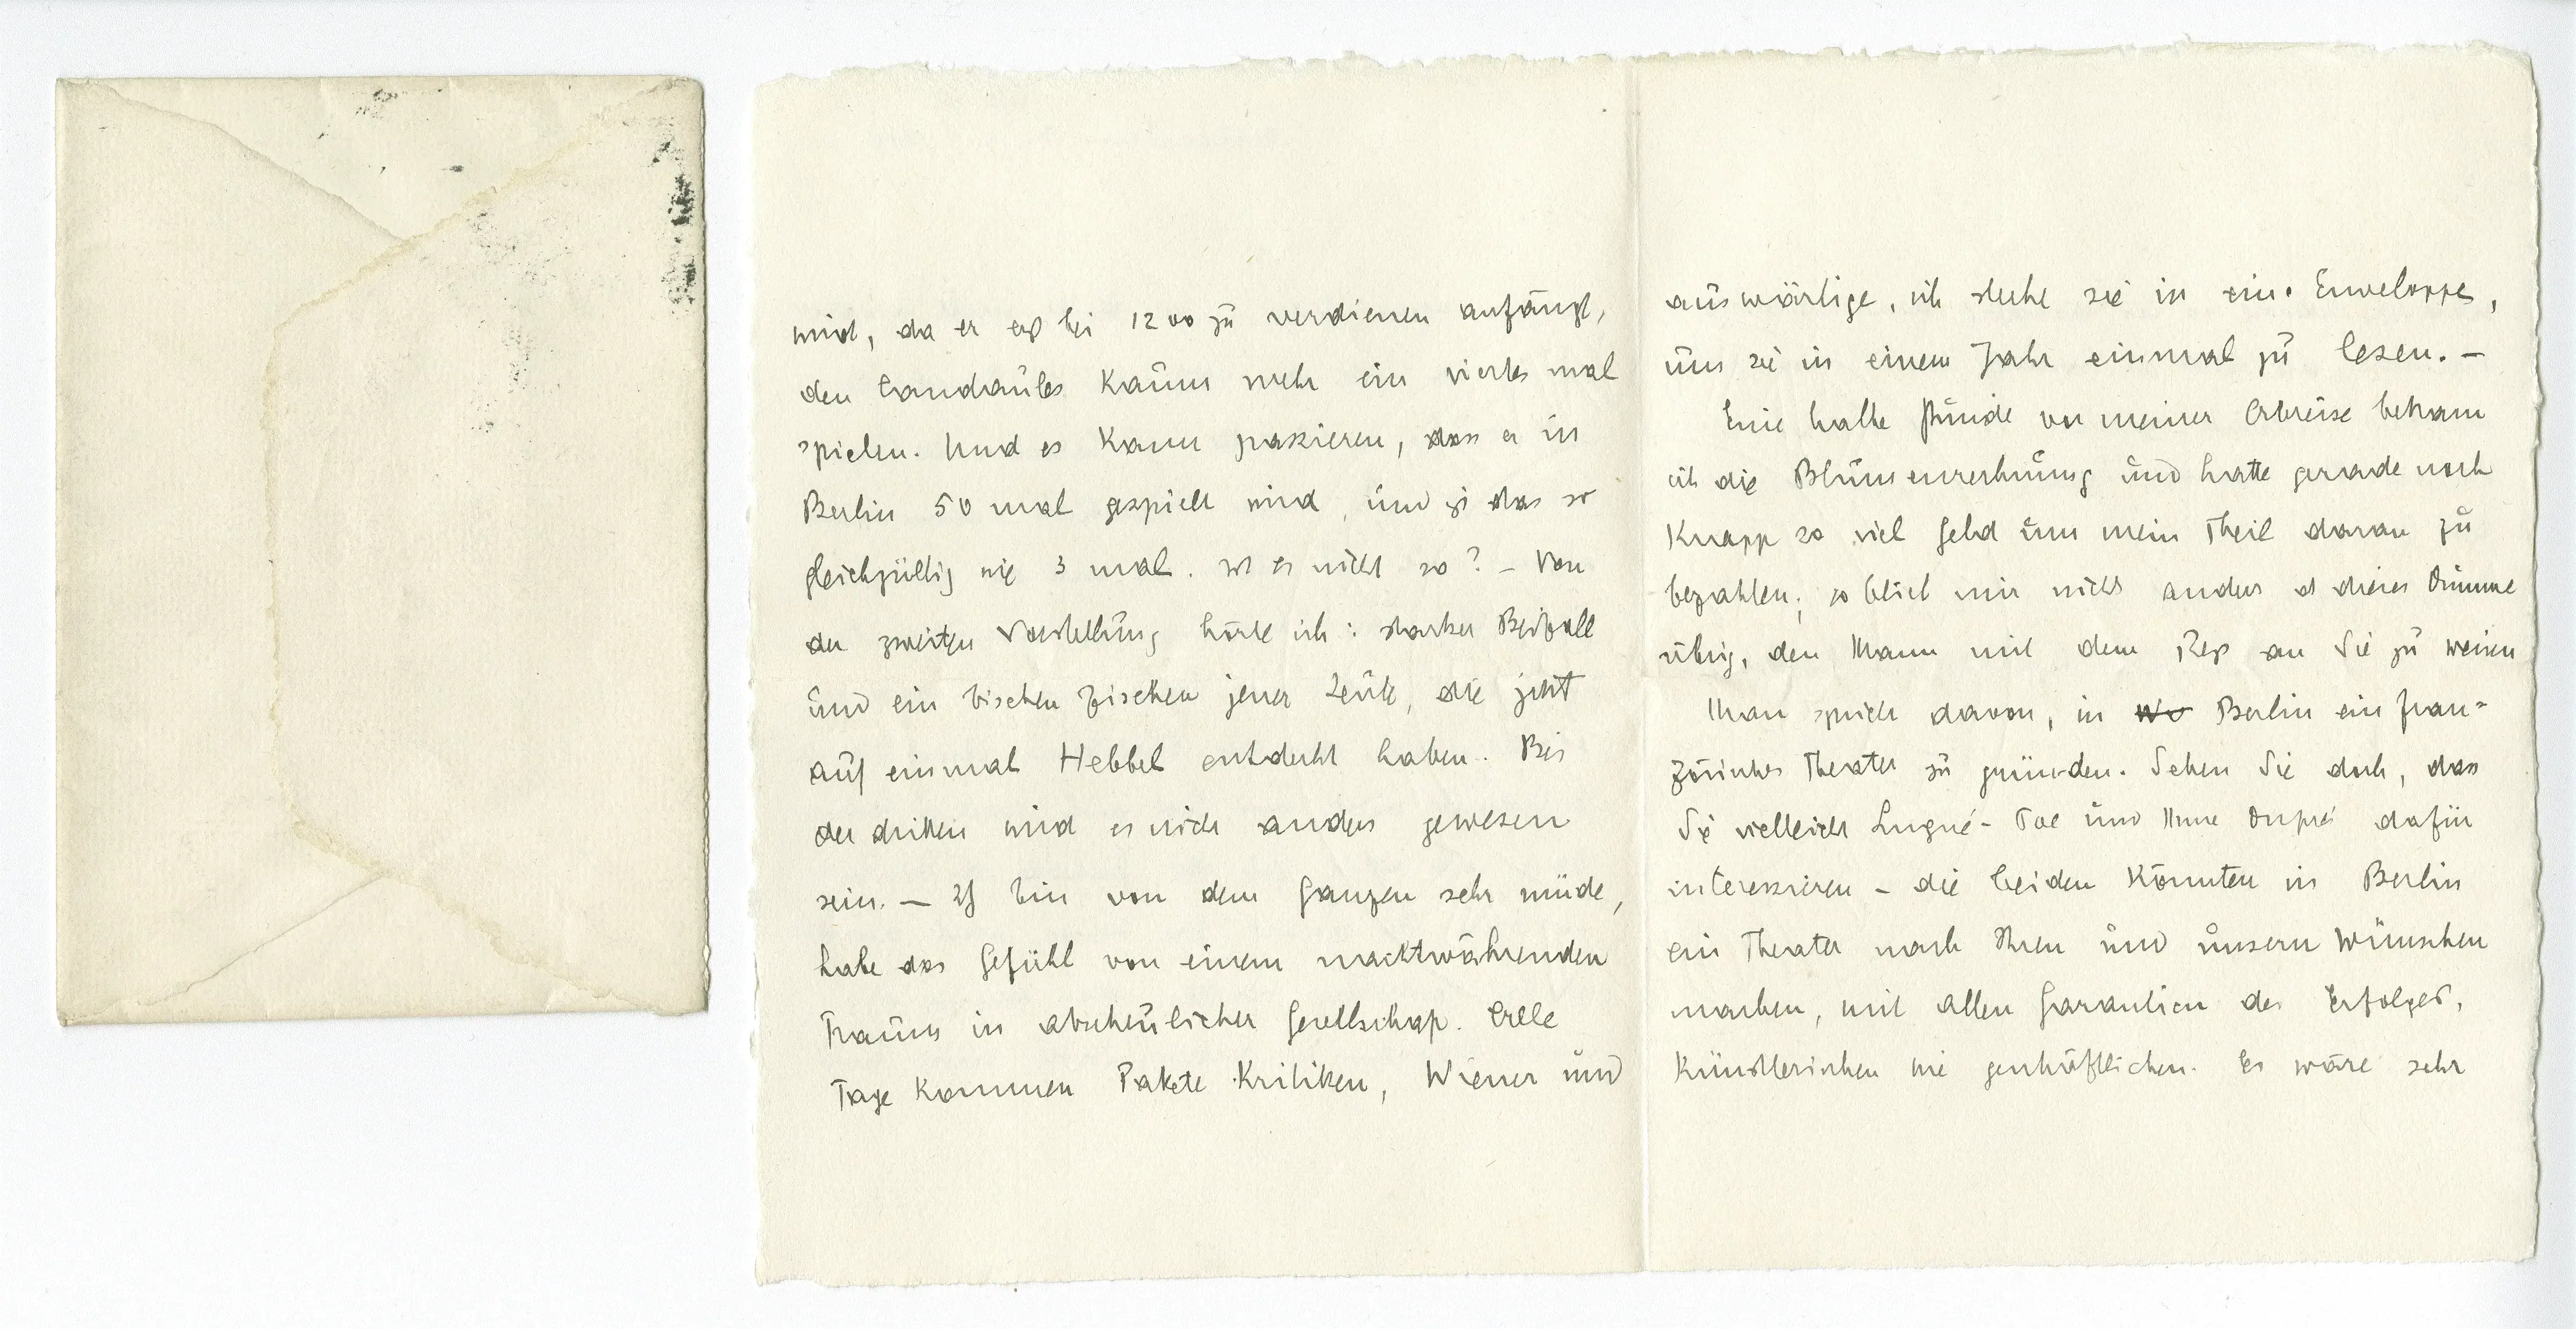 wird, da er erst bei 1200 zu verdienen anfängt,
den Candaules kaum mehr ein viertes mal
spielen. Und es kann passieren, dass er in
Berlin 50 mal gespielt wird, und ist das so
gleichgültig wie 3 mal. Ist es nicht so? – Von
der zweiten Vorstellung hörte ich: starker Beifall
und ein bischen Zischen jener Leute, die jetzt
auf einmal Hebbel entdeckt haben. Bei
der dritten wird es nicht anders gewesen
sein. – Ich bin von dem Ganzen sehr müde,
habe das Gefühl von einem nachtwährenden
Traum in abscheulicher Gesellschaft. Alle
Tage kommen Pakete Kritiken, Wiener und
auswärtige, ich stecke sie in eine Enveloppe,
um sie in einem Jahr einmal zu lesen. –
Eine halbe Stunde vor meiner Abreise bekam
ich die Blumenrechnung und hatte gerade noch
knapp so viel Geld um mein Theil daran zu
bezahlen; so blieb mir nichts anders als dieses Dumme
übrig, den Mann mit dem Rest an Sie zu weisen
Man spricht davon, in Berlin ein fran-
zösisches Theater zu gründen. Sehen Sie doch, dass
Sie vielleicht Lugné-Poe und Mme Duprés dafür
interessieren – die beiden könnten in Berlin
ein Theater nach Ihren und unsern Wünschen
machen, mit allen Garantien des Erfolges,
künstlerischen wie geschäftlichen. Es wäre sehr